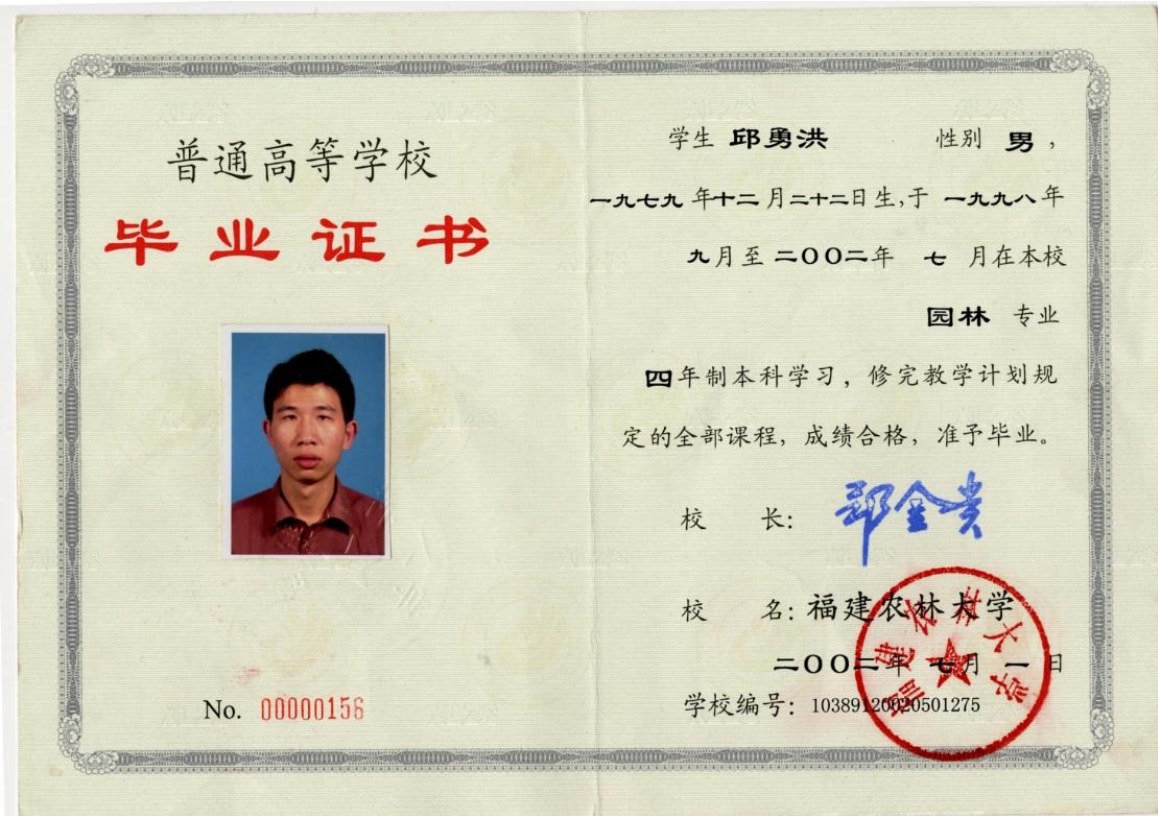 普通高等学校
毕业证书
No. 00000156
学生 邱勇洪 性别 男，
一九七九年十二月二十二日生,于 一九九八年
九月至二〇〇二年 七 月在本校
园林 专业
四年制本科学习，修完教学计划规
定的全部课程，成绩合格，准予毕业。
校 长：郑金贵
校 名：福建农林大学
二〇〇二年 七月 一日
学校编号：10389120020501275
福建农林大学